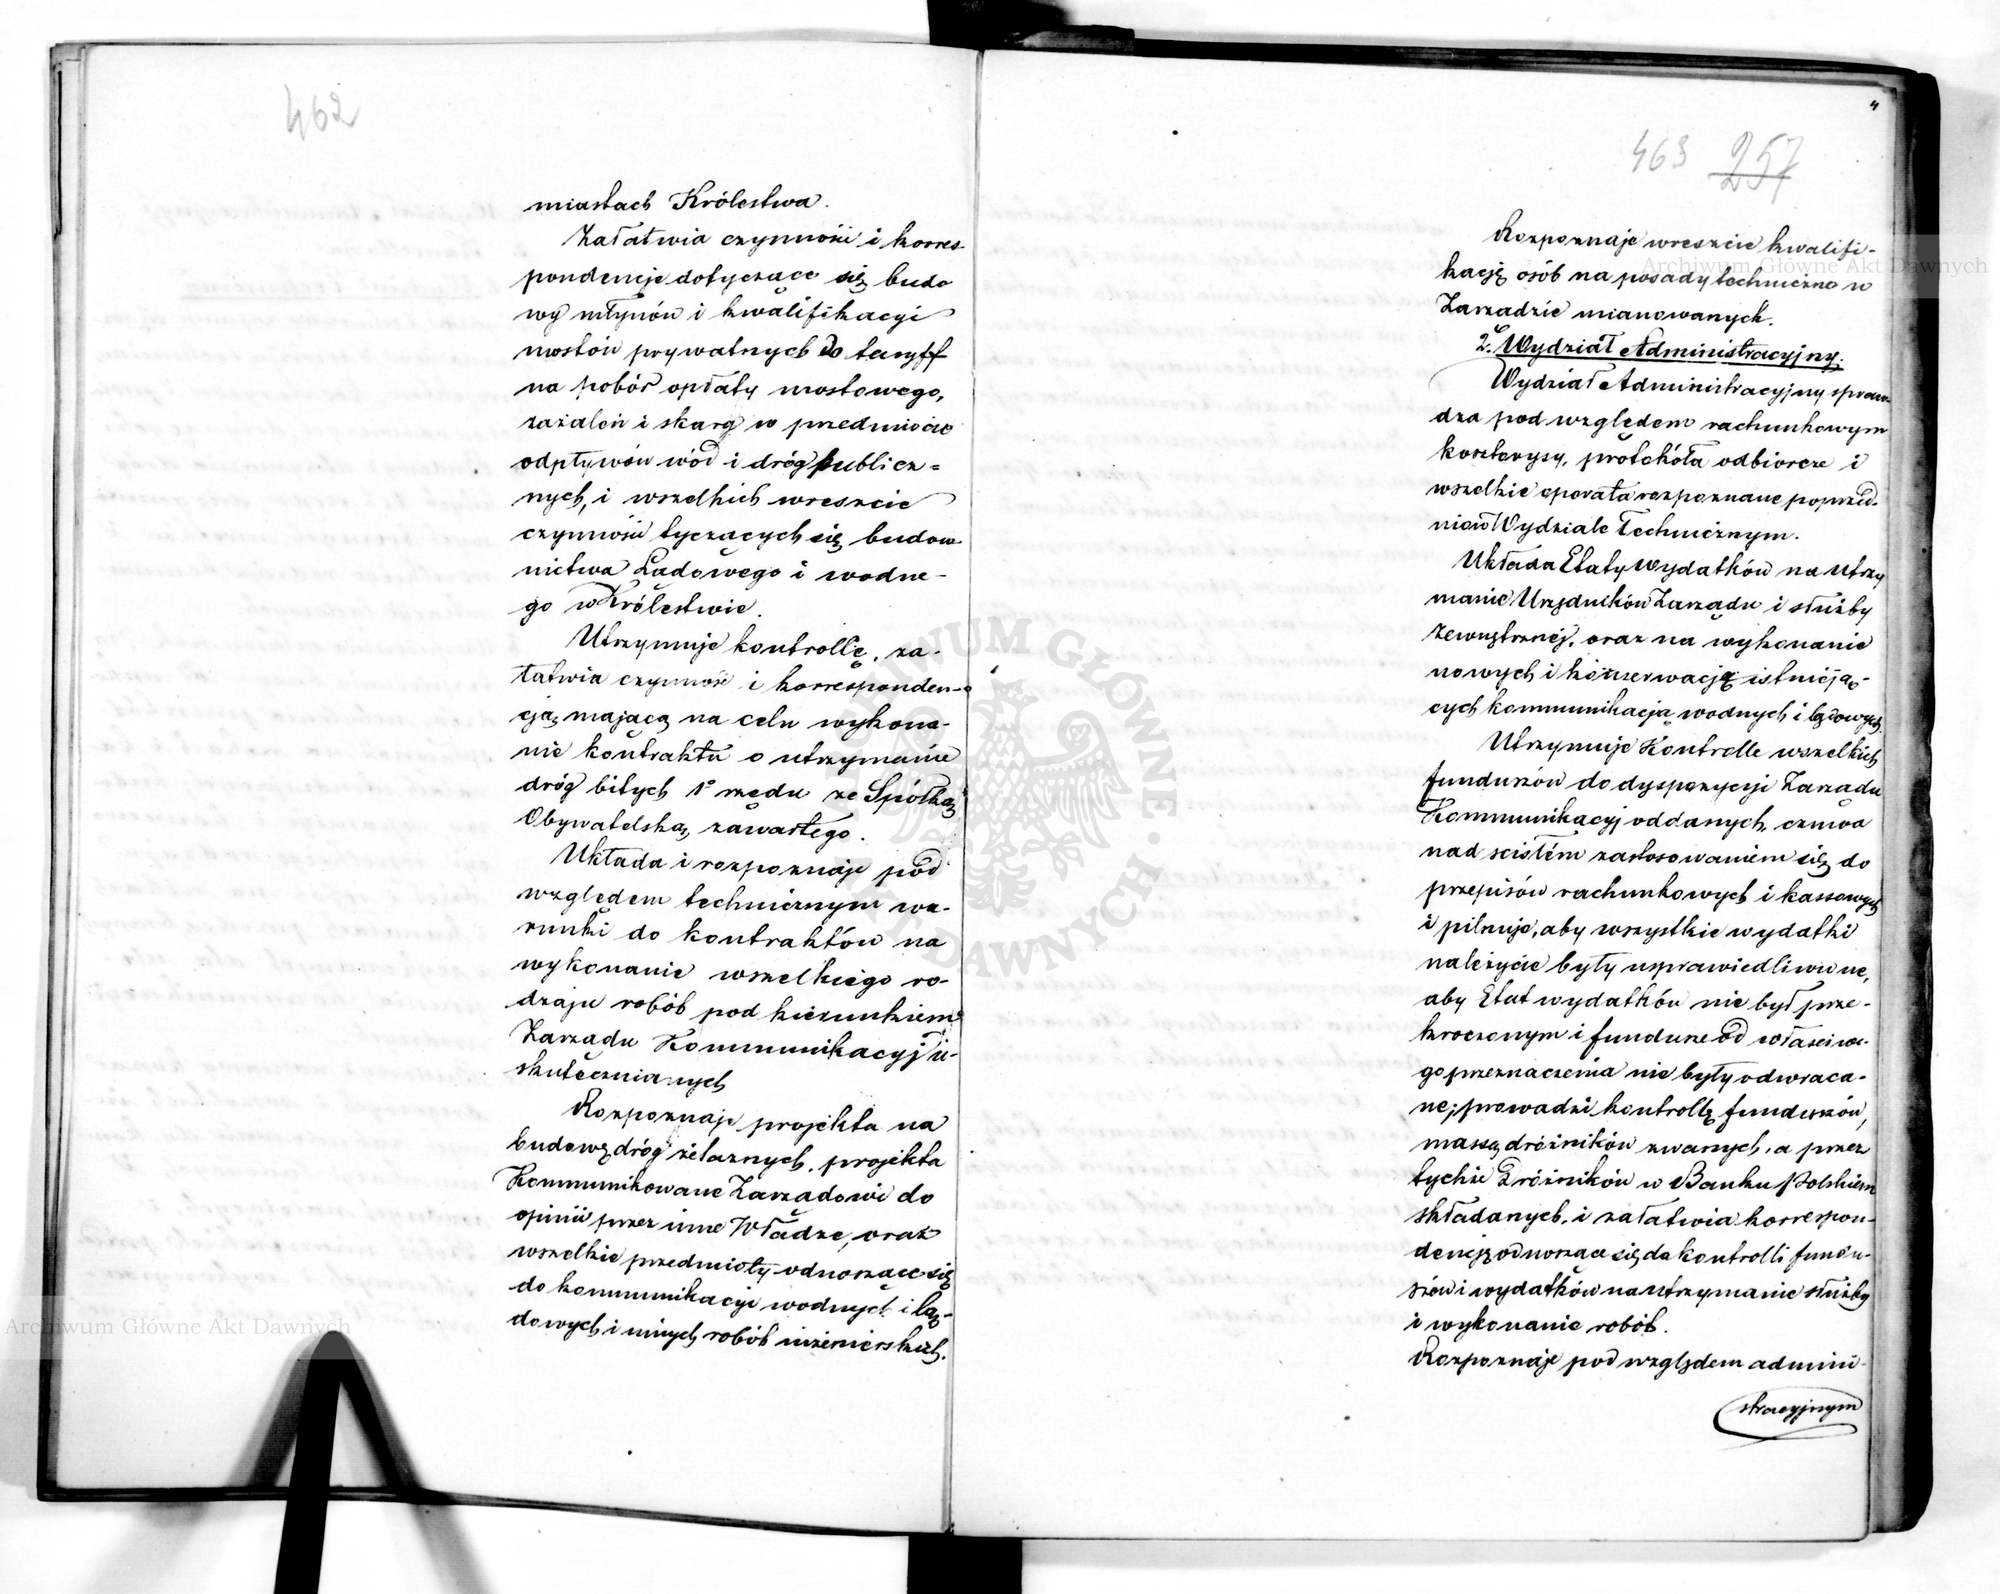 462
miastach Królestwa.
Załatwia czynności i korres-
pondencje dotyczące się budo
wy młynów i kwalifikacyi
mostów prywatnych do taryff
na pobór opłaty mostowego,
zażaleń i skarg w przedmiocie
odpływów wód i dróg publicz=
nych, i wszelkich wreszcie
czynności tyczących się budow
nictwa Lądowego i wodne-
go w Królestwie.
Utrzymuje kontrollę, za-
łatwia czynności i korresponden-
cją, mającą na celu wykona-
nie kontraktu o utrzymanie
dróg bitych 1° rzędu ze Spółką
Obywatelską, zawartego.
Układa i rozpoznaje pod
względem technicznym wa-
runki do kontraktów na
wykonanie wszelkiego ro-
dzaju robót pod kierunkiem
Zarządu Kommunikacyj u-
skutecznianych
Rozpoznaje projekta na
budowę dróg żelaznych, projekta
Kommunikowane Zarządowi do
opinii przez inne Władze, oraz
wszelkie przedmioty odnoszące się
do kommunikacyi wodnych i lą-
dowych i innych robót inżenierskich.
463 257
Rozpoznaje wreszcie kwalifi-
kację osób na posady techniczne w
Zarządzie mianowanych.
2. Wydział Administracyjny.
Wydział Administracyjny spraw-
dza pod względem rachunkowym
kosztorysy, protokóła odbiorcze i
wszelkie operata rozpoznane poprzed-
nio w Wydziale Technicznym.
Układa Etaty wydatków na utrzy
manie Urzędników Zarządu i służby
Zewnętrznej, oraz na wykonanie
nowych i konserwację istnieją-
cych kommunikacja wodnych i lądowych.
Utrzymuje Kontrolle wszelkich
funduszów do dyspozycyi Zarządu
Kommunikacyj oddanych, czuwa
nad scisłém zastosowaniem się do
przepisów rachunkowych i kassowych
i pilnuje, aby wszystkie wydatki
należycie były usprawiedliwione,
aby Etat wydatków nie był prze-
kroczonym i fundusze od właściwe-
go przeznaczenia nie były odwraca-
ne; prowadzi kontrollę funduszów,
massą dróżników zwanych, a przez
tychże Dróżników w Banku Polskiem
składanych, i załatwia korrespon-
dencję odnoszące się do kontrolli fundu-
szów i wydatków na utrzymanie służby
i wykonanie robót.
Rozpoznaje pod względem admini-
stracyjnym
Archiwum Główne Akt Dawnych
Archiwum Główne Akt Dawnych
ARCHIWUM GŁÓWNE AKT DAWNYCH